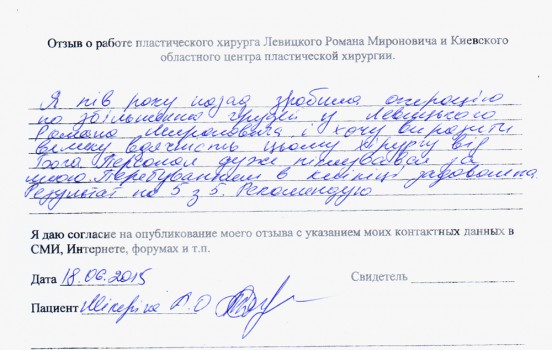 Отзыв о работе пластического хирурга Левицкого Романа Мироновича и Киевского
областного центра пластической хирургии.
Я пів року назад зробила операцію
по збільшенню грудей у Левицького
Романа Мироновича і хочу виразити
велику вдячність цьому хірургу від
Бога. Персонал дуже піклувався за
мною. Перебуванням в клініці задоволена.
Результат на 5 з 5. Рекомендую
Я даю согласие на опубликование моего отзыва с указанием моих контактных данных в
СМИ, Интернете, форумах и т.п.
Дата 18.06.2015 Свидетель
Пациент О